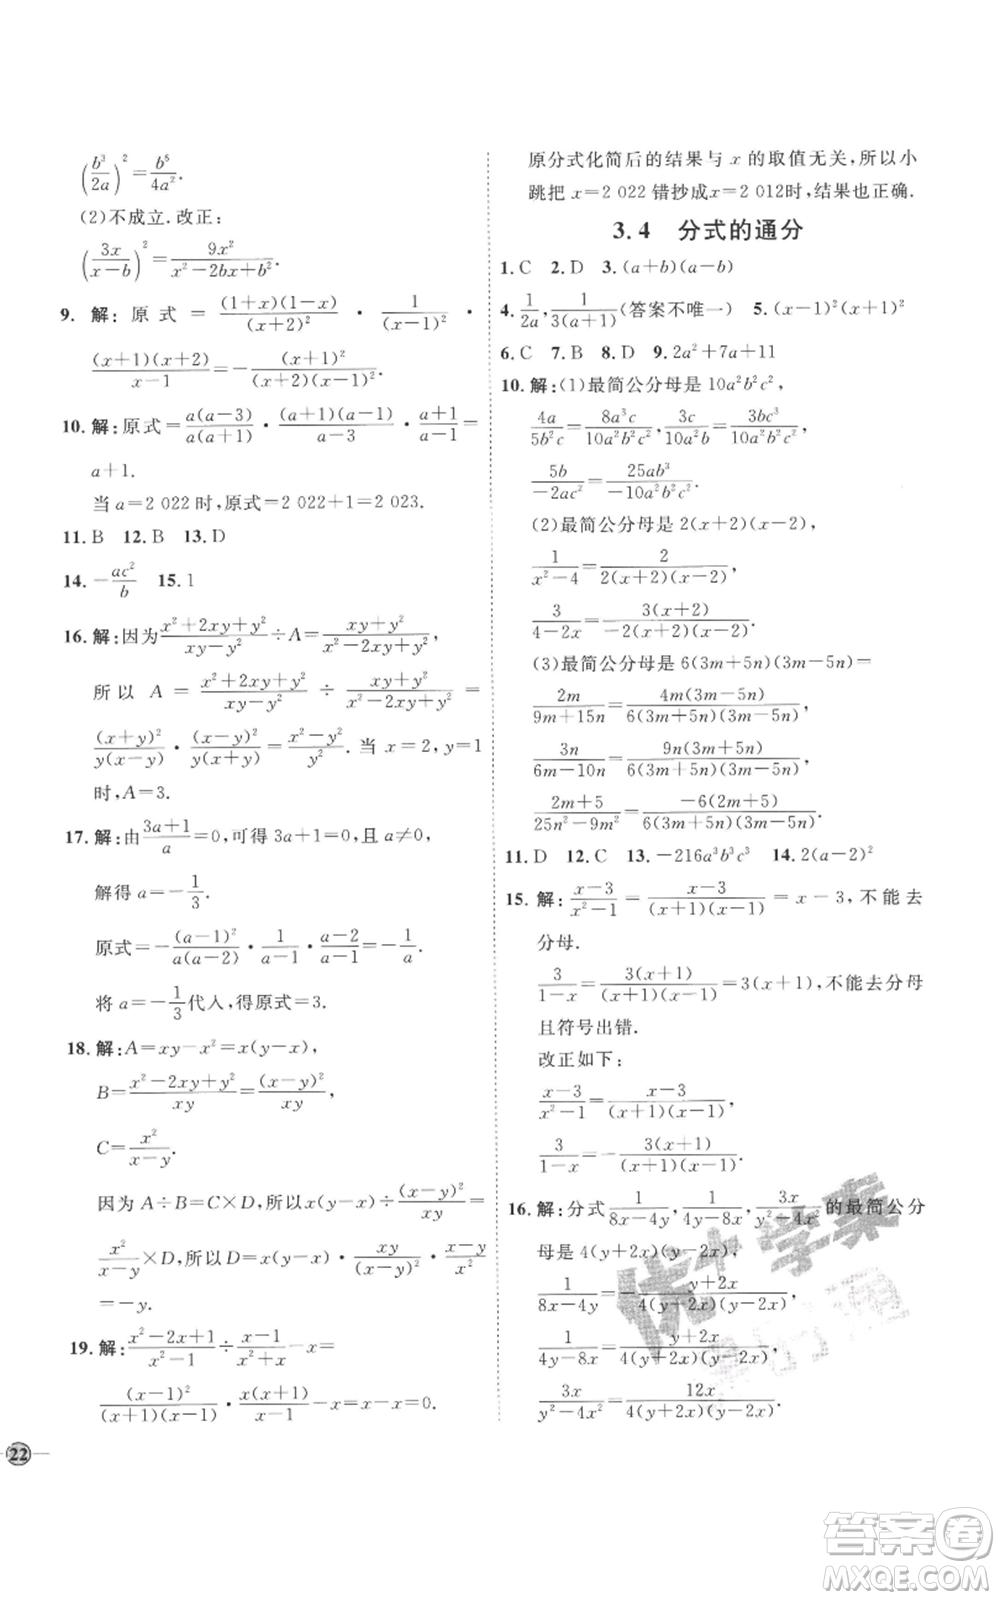 (b³/2a)²=b⁵/4a².
(2)不成立.改正:
(3x/(x-b))²=9x²/(x²-2bx+b²).
9. 解:原式=(1+x)(1-x)/(x+2)² · 1/(x-1)² ·
(x+1)(x+1)/(x-1)=-(x+1)²/((x+2)²(x-1)²).
10. 解:原式=a(a-3)/(a(a+1)) · (a+1)(a-1)/(a-3) · (a+1)/(a-1)=
a+1.
当a=2 022时,原式=2 022+1=2 023.
11. B 12. B 13. D
14. -ac²/b 15. 1
16. 解:因为(x²+2xy+y²)/(xy-y²)÷A=(xy+y²)/(x²-2xy+y²),
所以A=(x²+2xy+y²)/(xy-y²)÷(xy+y²)/(x²-2xy+y²)=
(x+y)²/(y(x-y)) · (x-y)²/(y(x+y))=(x²-y²)/y².当x=2,y=1
时,A=3.
17. 解:由(3a+1)/a=0,可得3a+1=0,且a≠0,
解得a=-1/3.
原式=-(a-1)²/(a(a-2)) · 1/(a-1) · (a-2)/(a-1)=-1/a.
将a=-1/3代人,得原式=3.
18. 解:A=xy-x²=x(y-x),
B=(x²-2xy+y²)/xy=(x-y)²/xy,
C=x²/(x-y).
因为A÷B=C×D,所以x(y-x)÷(x-y)²/xy=
x²/(x-y)×D,所以D=x(y-x) · xy/(x-y)² · (x-y)/x²
=-y.
19. 解:(x²-2x+1)/(x²-1)÷(x-1)/(x²+x)-x=
(x-1)²/((x+1)(x-1)) · x(x+1)/(x-1)-x=x-x=0.
22
原分式化简后的结果与x的取值无关,所以小
跳把x=2 022错抄成x=2 012时,结果也正确.
3.4 分式的通分
1. C 2. D 3. (a+b)(a-b)
4. 1/2a,1/(3(a+1))(答案不唯一) 5. (x-1)²(x+1)²
6. C 7. B 8. D 9. 2a²+7a+11
10. 解:(1)最简公分母是10a²b²c²,
4a/5b²c=8a³c/10a²b²c²,3c/10a²b=3bc³/10a²b²c²,
5b/-2ac²=25ab³/-10a²b²c².
(2)最简公分母是2(x+2)(x-2),
1/(x²-4)=2/(2(x+2)(x-2)),
3/(4-2x)=3(x+2)/(-2(x+2)(x-2)).
(3)最简公分母是6(3m+5n)(3m-5n)=
2m/(9m+15n)=4m(3m-5n)/(6(3m+5n)(3m-5n))
3n/(6m-10n)=9n(3m+5n)/(6(3m+5n)(3m-5n))
(2m+5)/(25n²-9m²)=-6(2m+5)/(6(3m+5n)(3m-5n)).
11. D 12. C 13. -216a³b³c³ 14. 2(a-2)²
15. 解:(x-3)/(x²-1)=(x-3)/((x+1)(x-1))=x-3,不能去
分母.
3/(1-x)=3(x+1)/((x+1)(x-1))=3(x+1),不能去分母
且符号出错.
改正如下:
(x-3)/(x²-1)=(x-3)/((x+1)(x-1)),
3/(1-x)=-3(x+1)/((x+1)(x-1)).
16. 解:分式1/(8x-4y),1/(4y-8x),3x/(y²-4x²)的最简公分
母是4(y+2x)(y-2x),
1/(8x-4y)=-(y+2x)/(4(y+2x)(y-2x)),
1/(4y-8x)=(y+2x)/(4(y+2x)(y-2x)),
3x/(y²-4x²)=12x/(4(y+2x)(y-2x)).
优+学案
答案卷
MXQE.COM